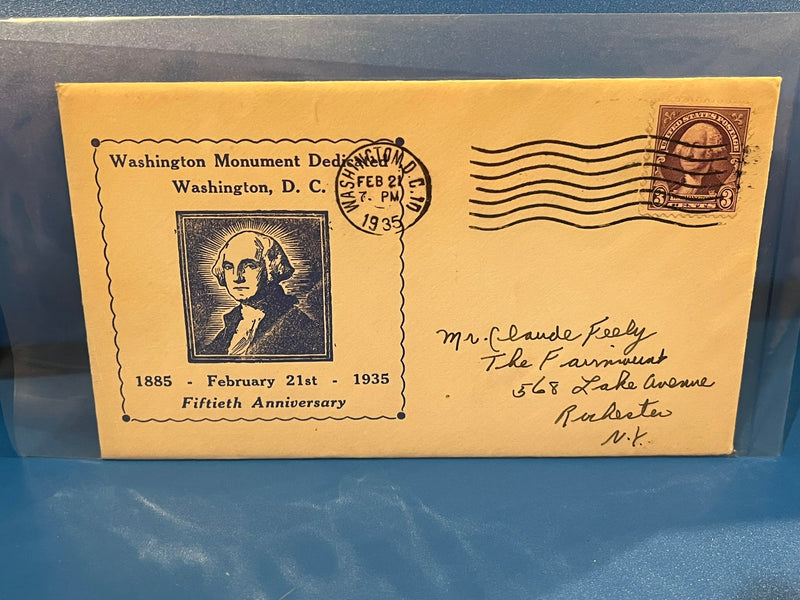 Washington Monument Dedicated
Washington, D. C.
1885 - February 21st - 1935
Fiftieth Anniversary
WASHINGTON, D.C. 10
FEB 21
7 - PM
1935
UNITED STATES POSTAGE
3 3
CENTS
Mr. Claude Feely
The Fairmount
568 Lake Avenue
Rochester
N.Y.